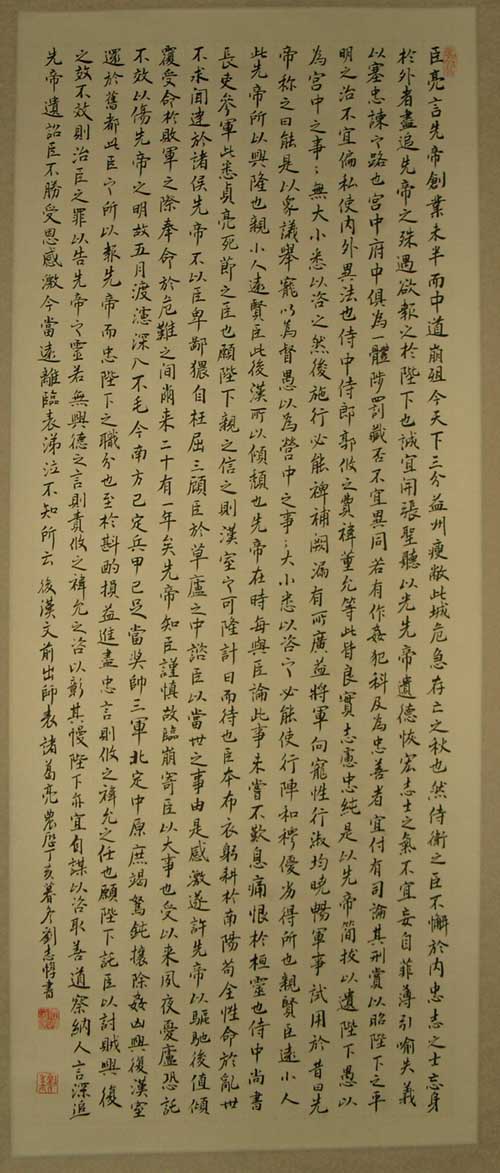 臣亮言先帝創業未半而中道崩殂今天下三分益州瘦敝此城危急存亡之秋也然侍衛之臣不懈於內忠志之士忘身
於外者盡追先帝之殊遇欲報之於陛下也誠宜開張聖聽以光先帝遺德恢宏志士之氣不宜妄自菲薄引喻失義
以塞忠諫之路也宮中府中俱為一體陟罰臧否不宜異同若有作姦犯科及為忠善者宜付有司論其刑賞以昭陛下之平
明之治不宜偏私使內外異法也侍中侍郎郭攸之費褘董允等此皆良實志慮忠純是以先帝簡拔以遺陛下愚以
為宮中之事〻無大小悉以咨之然後施行必能裨補闕漏有所廣益將軍向寵性行淑均曉暢軍事試用於昔日先
帝稱之曰能是以眾議舉寵以為督愚以為營中之事〻大小悉以咨之必能使行陣和穆優劣得所也親賢臣遠小人
此先帝所以興隆也親小人遠賢臣此後漢所以傾頹也先帝在時每與臣論此事未嘗不歎息痛恨於桓靈也侍中尚書
長吏參軍此悉貞亮死節之臣也願陛下親之信之則漢室之可隆計日而待也臣本布衣躬耕於南陽苟全性命於亂世
不求聞達於諸侯先帝不以臣卑鄙猥自枉屈三顧臣於草廬之中諮臣以當世之事由是感激遂許先帝以驅馳後值傾
覆受命於敗軍之際奉命於危難之間爾來二十有一年矣先帝知臣謹慎故臨崩寄臣以大事也受以來夙夜憂慮恐託
不效以傷先帝之明故五月渡瀘深入不毛今南方已定兵甲已足當奬帥三軍北定中原庶竭駑鈍攘除姦凶興復漢室
還於舊都此臣之所以報先帝而忠陛下之職分也至於斟酌損益進盡忠言則攸之褘允之任也願陛下託臣以討賊興復
之效不效則治臣之罪以告先帝之靈若無興德之言則責攸之褘允之咎以彰其慢陛下亦宜自謀以咨取善道察納人言深追
先帝遺詔臣不勝受恩感激今當遠離臨表涕泣不知所云 後漢文前出師表諸葛亮 農曆丁亥暮冬劉志惇書